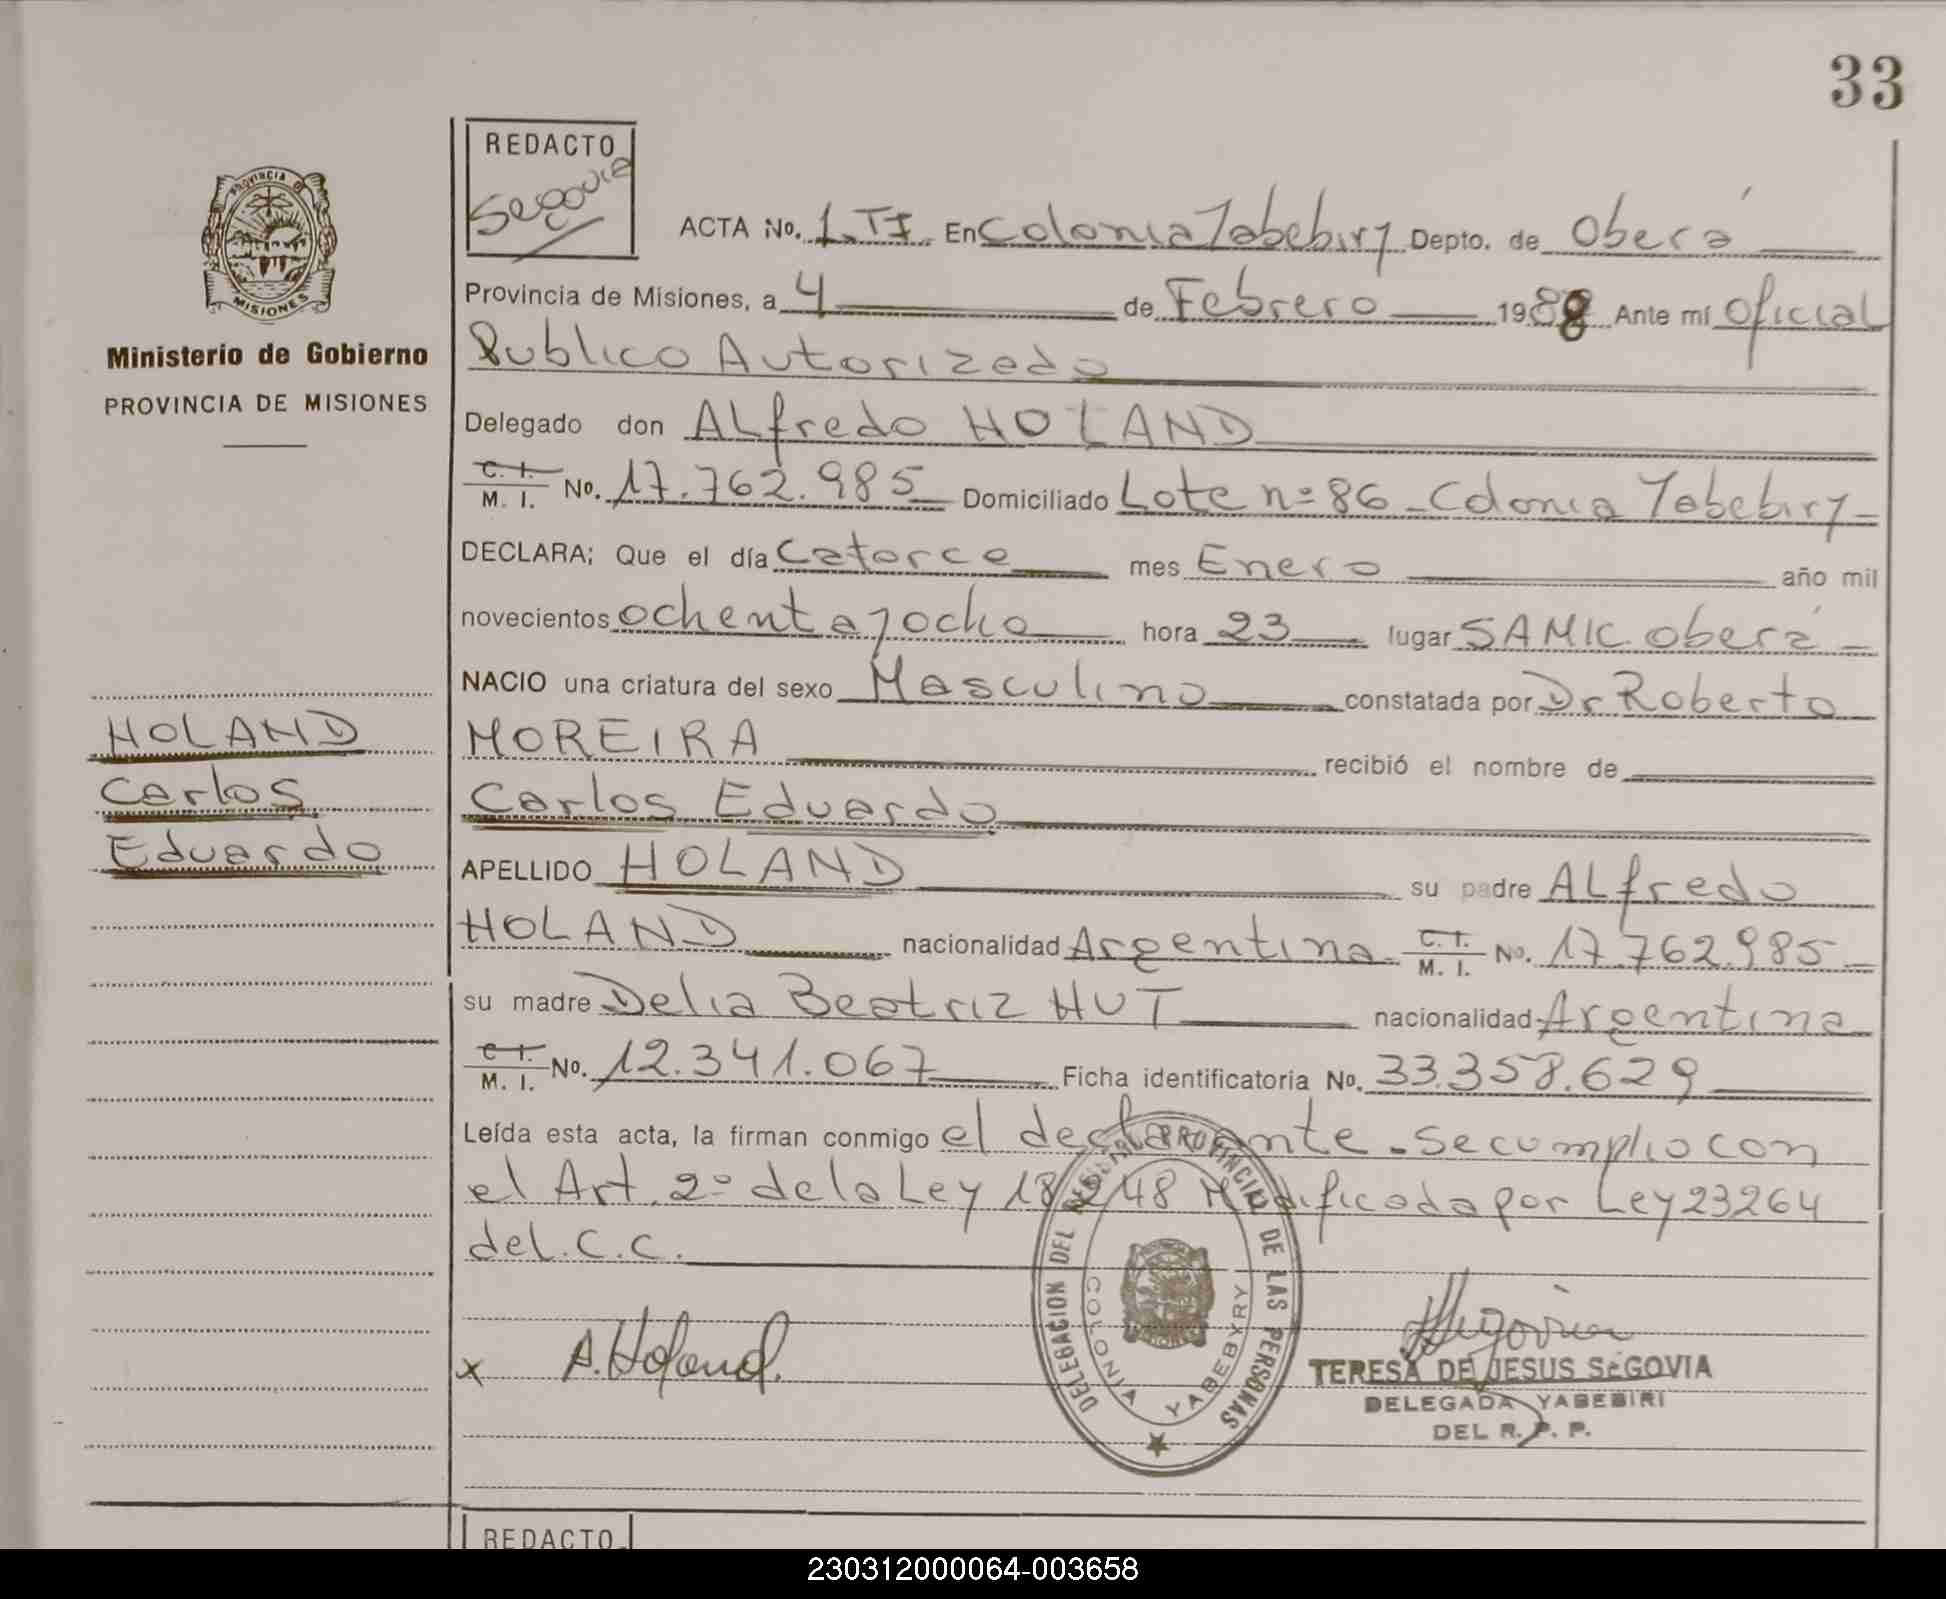 33
REDACTO
Segovia
PROVINCIA DE
MISIONES
ACTA No. 1.TI. En Colonia Yabebiry Depto. de Oberá
Provincia de Misiones, a 4 de Febrero 1988 Ante mí Oficial
Publico Autorizado
Ministerio de Gobierno
PROVINCIA DE MISIONES
Delegado don ALfredo HOLAND
C. I. M. I. No. 17.762.985 Domiciliado Lote nº 86 - Colonia Yabebiry -
DECLARA; Que el día Catorce mes Enero año mil
novecientos ochenta y ocho hora 23 lugar SAMIC Oberá -
NACIO una criatura del sexo Masculino constatada por Dr Roberto
MOREIRA recibió el nombre de
Carlos Eduardo
HOLAND
Carlos
Eduardo
APELLIDO HOLAND su padre ALfredo
HOLAND nacionalidad Argentina - C. I. M. I. No. 17.762.985 -
su madre Delia Beatriz HUT nacionalidad Argentina
C. I. M. I. No. 12.341.067 Ficha identificatoria No. 33.358.629
Leída esta acta, la firman conmigo el declarante - se cumplio con
el Art. 2º de la Ley 18248 Modificada por Ley 23264
del C.C.
x A. Holand.
DELEGACION DEL REGISTRO PROVINCIAL DE LAS PERSONAS
COLONIA YABEBYRY
Segovia
TERESA DE JESUS SEGOVIA
DELEGADA YABEBIRI
DEL R. P. P.
REDACTO
230312000064-003658